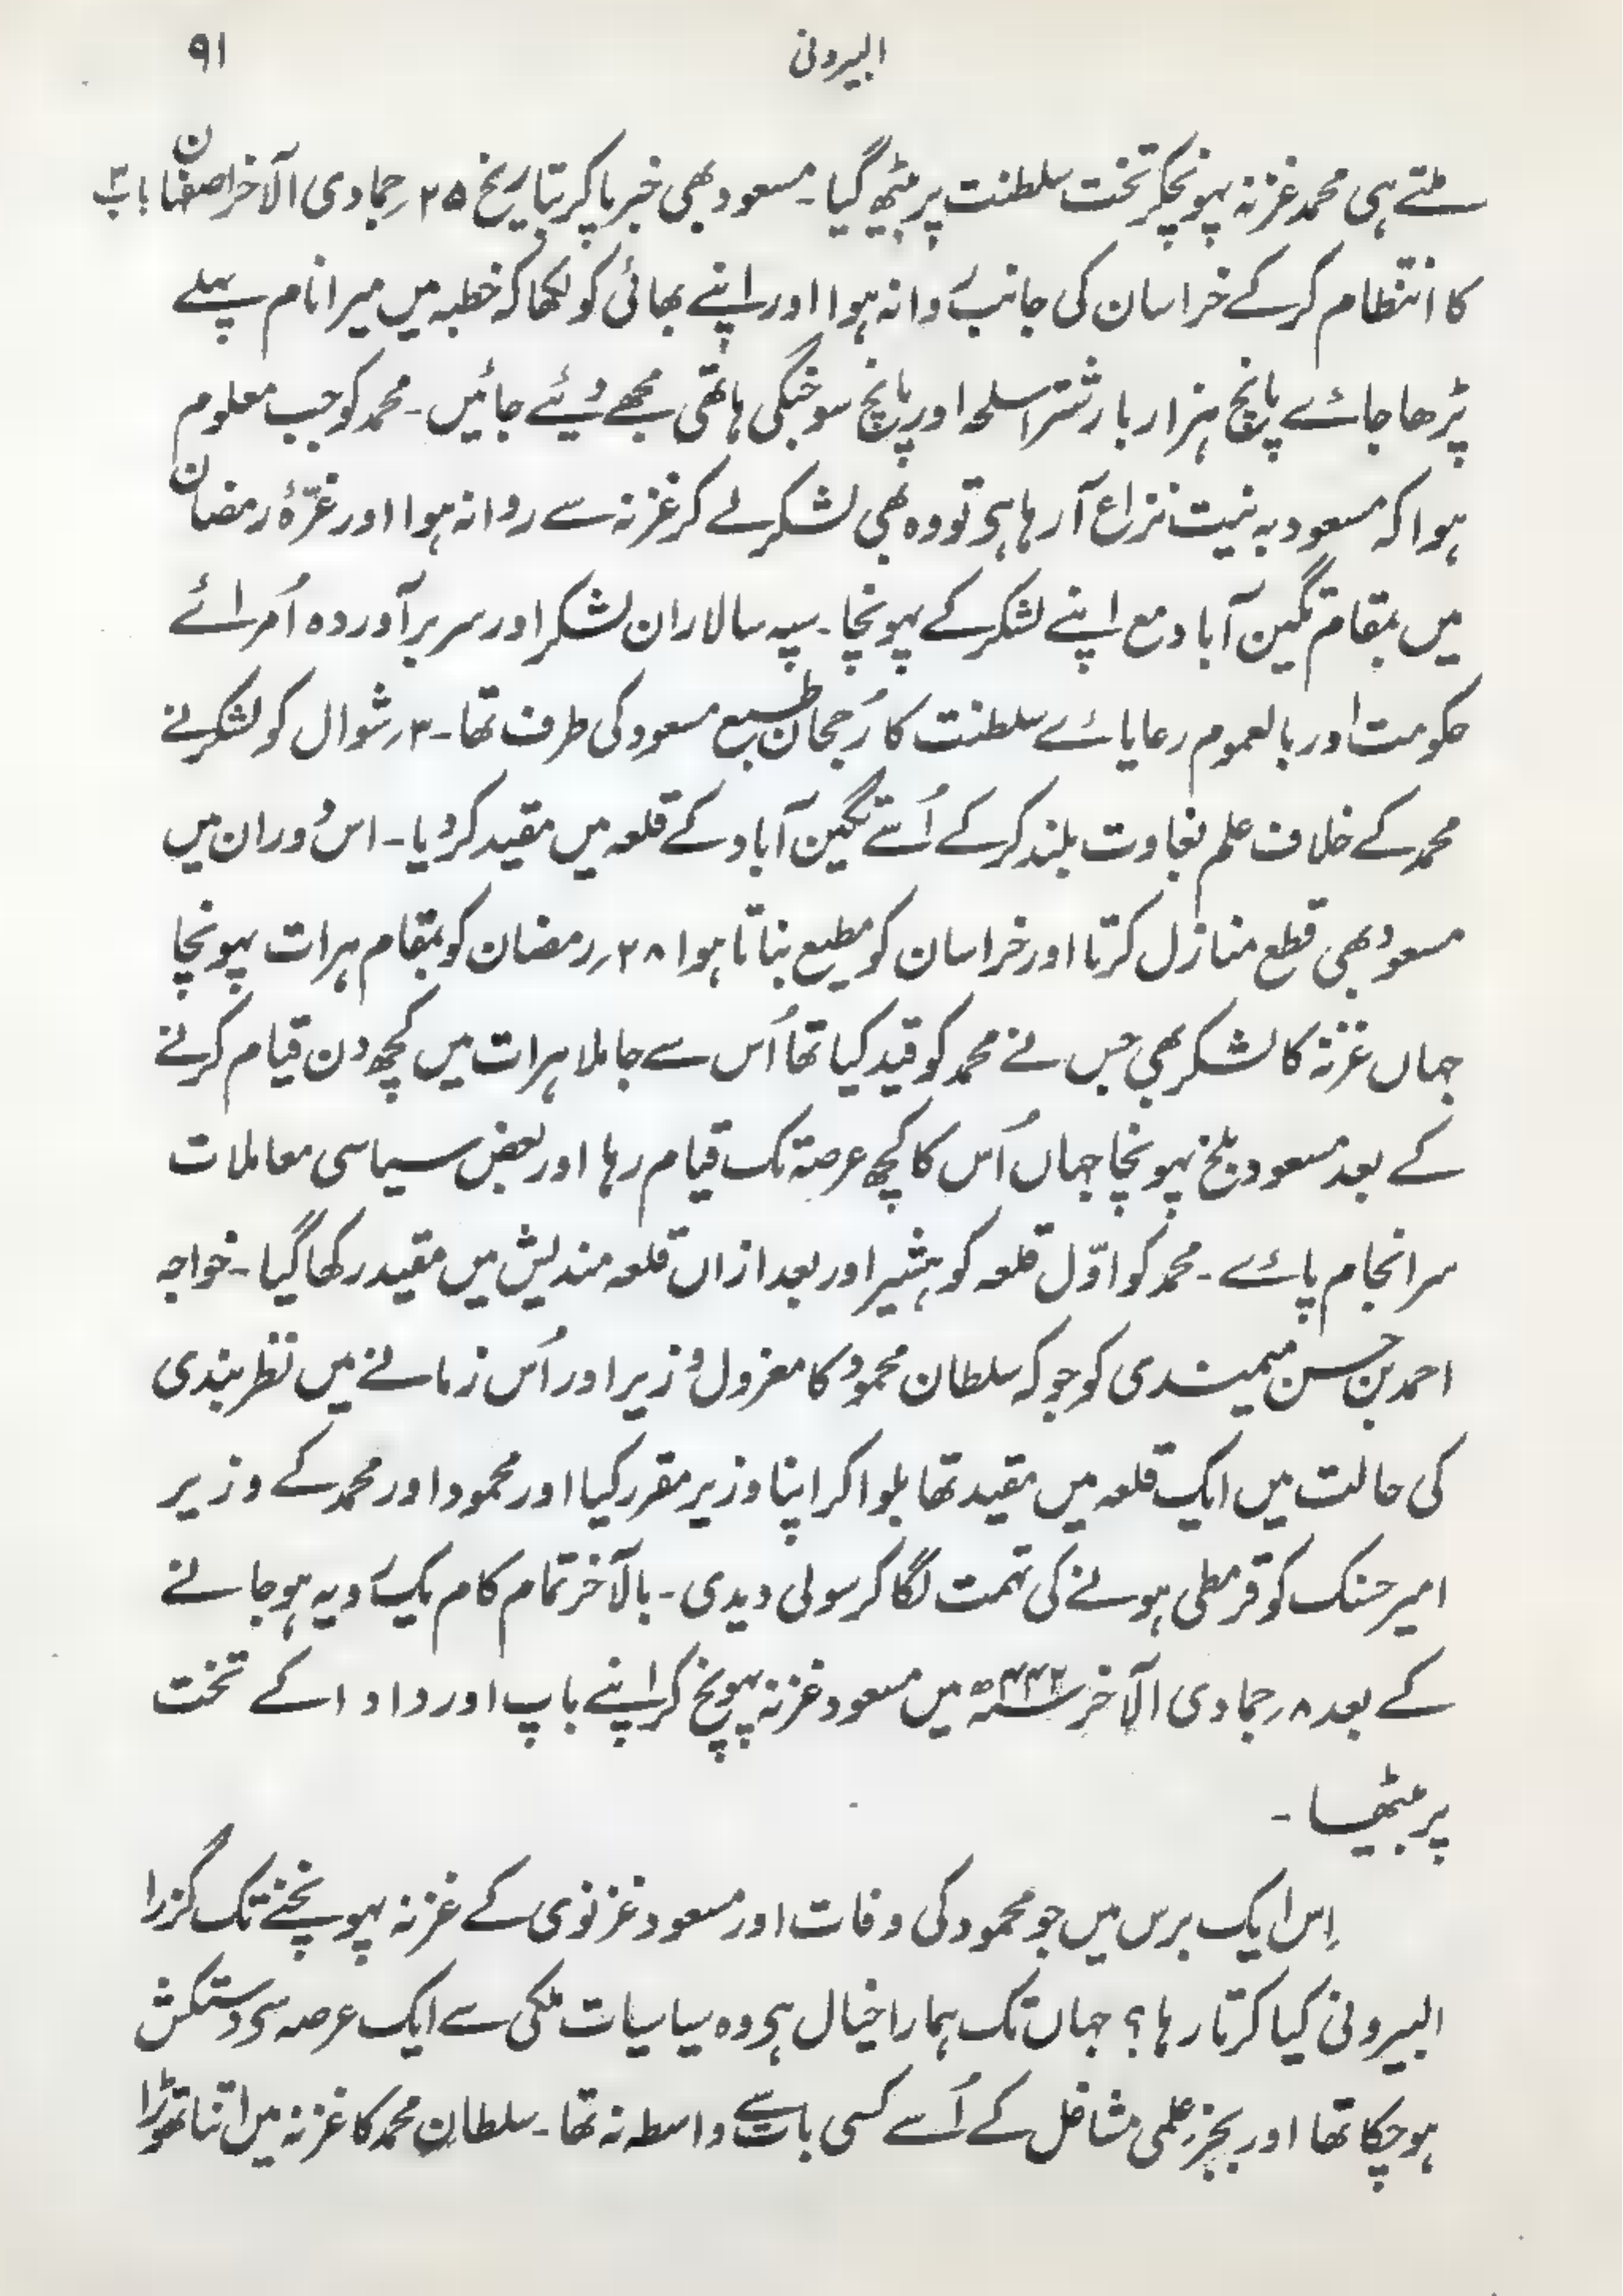 البیرونی ۹۱
ملتے ہی محمد غزنہ پہونچکر تخت سلطنت پر بیٹھ گیا۔ مسعود بھی خبر پاکر بتاریخ ۲۵؍ جمادی الآخر اصفہان
کا انتظام کرکے خراسان کی جانب روانہ ہوا اور اپنے بھائی کو لکھا کہ خطبہ میں میرا نام پہلے
پڑھا جائے پانچ ہزار بار شتر اسلحہ اور پانچ سو جنگی ہاتھی مجھے دیئے جائیں۔ محمد کو جب معلوم
ہوا کہ مسعود بہ نیت نزاع آرہا ہی تو وہ بھی لشکر لے کر غزنہ سے روانہ ہوا اور غرّۂ رمضان
میں بمقام تگین آباد مع اپنے لشکر کے پہونچا۔ سپہ سالاران لشکر اور سربرآوردہ اُمرائے
حکومت اور بالعموم رعایائے سلطنت کا رُجحان طبع مسعود کی طرف تھا۔ ۳؍ شوال کو لشکر نے
محمد کے خلاف علم بغاوت بلند کرکے اُسے تگین آباد کے قلعہ میں مقید کردیا۔ اس دوران میں
مسعود بھی قطع منازل کرتا اور خراسان کو مطیع بناتا ہوا ۲۸؍ رمضان کو بمقام ہرات پہونچا
جہاں غزنہ کا لشکر بھی جس نے محمد کو قید کیا تھا اُس سے جاملا ہرات میں کچھ دن قیام کرنے
کے بعد مسعود بلخ پہونچا جہاں اُس کا کچھ عرصہ تک قیام رہا اور بعض سیاسی معاملات
سرانجام پائے۔ محمد کو اوّل قلعہ کوہشیر اور بعد ازاں قلعہ مندیش میں مقید رکھا گیا۔ خواجہ
احمد بن حسن میمندی کو جو کہ سلطان محمود کا معزول وزیر اور اُس زمانے میں نظربندی
کی حالت میں ایک قلعہ میں مقید تھا بلوا کر اپنا وزیر مقرر کیا اور محمود اور محمد کے وزیر
امیر حسنک کو قرمطی ہونے کی تہمت لگا کر سولی دیدی۔ بالآخر تمام کام یک رویہ ہوجانے
کے بعد ۸؍ جمادی الآخر ۴۲۲ھ میں مسعود غزنہ پہونچ کر اپنے باپ اور دادا کے تخت
پر بیٹھا۔
اِس ایک برس میں جو محمود کی وفات اور مسعود غزنوی کے غزنہ پہونچنے تک گزرا
البیرونی کیا کرتا رہا؟ جہاں تک ہمارا خیال ہی وہ سیاسیات ملکی سے ایک عرصہ سی دستکش
ہوچکا تھا اور بجز علمی مشاغل کے اُسے کسی بات سے واسطہ نہ تھا۔ سلطان محمد کا غزنہ میں اتنا تھوڑا